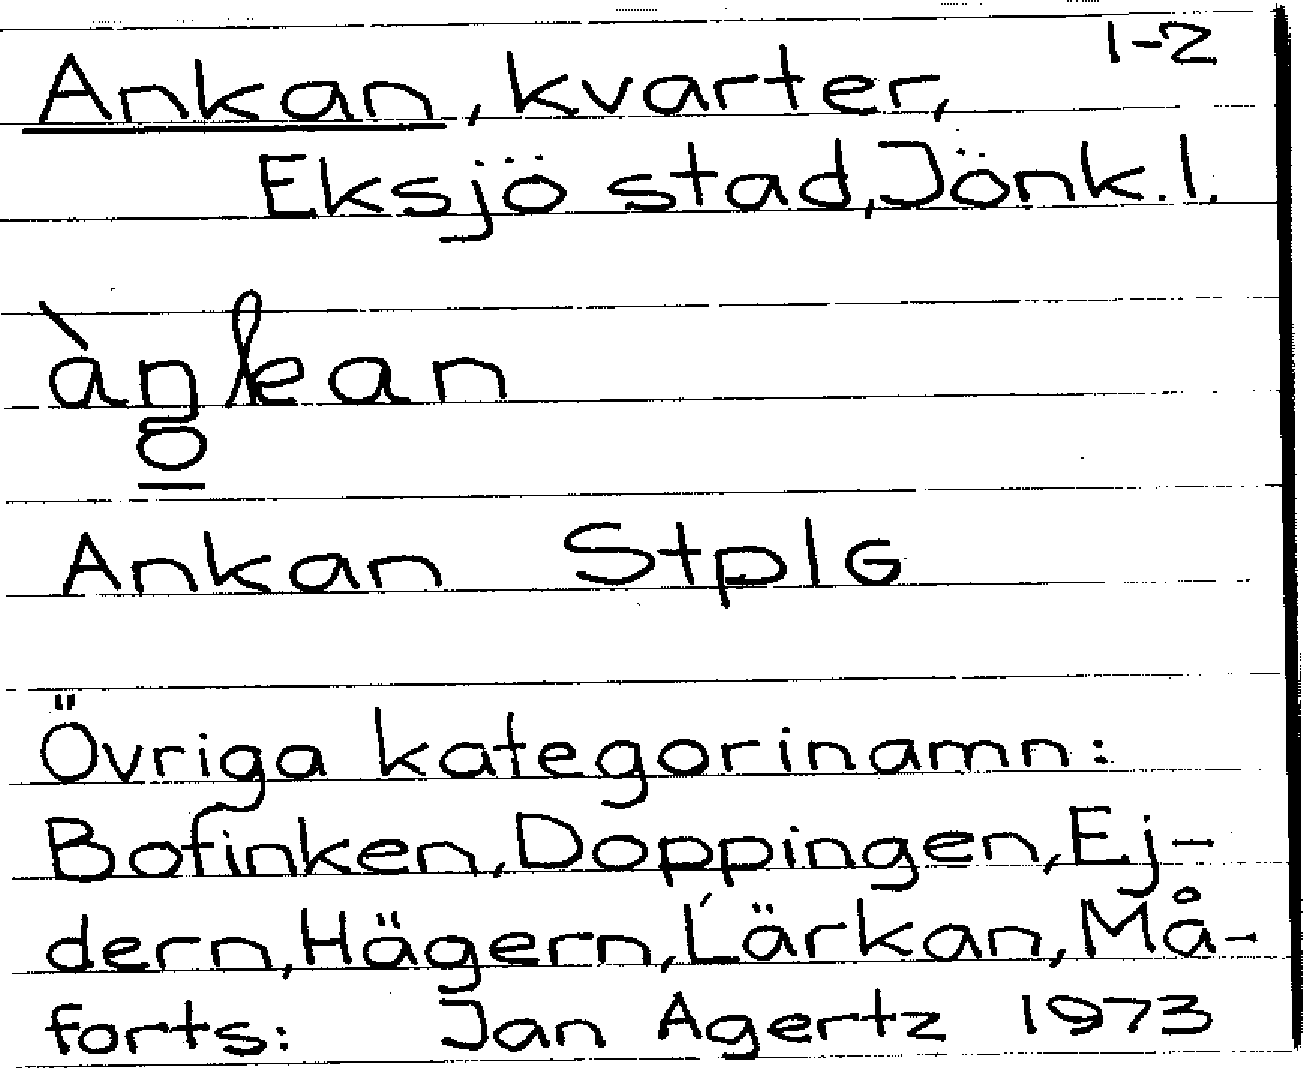 1-2
Ankan, kvarter,
Eksjö stad, Jönk. l.
àŋkan
Ankan StplG
Övriga kategorinamn:
Bofinken, Doppingen, Ej-
dern, Hägern, Lärkan, Må-
forts: Jan Agertz 1973